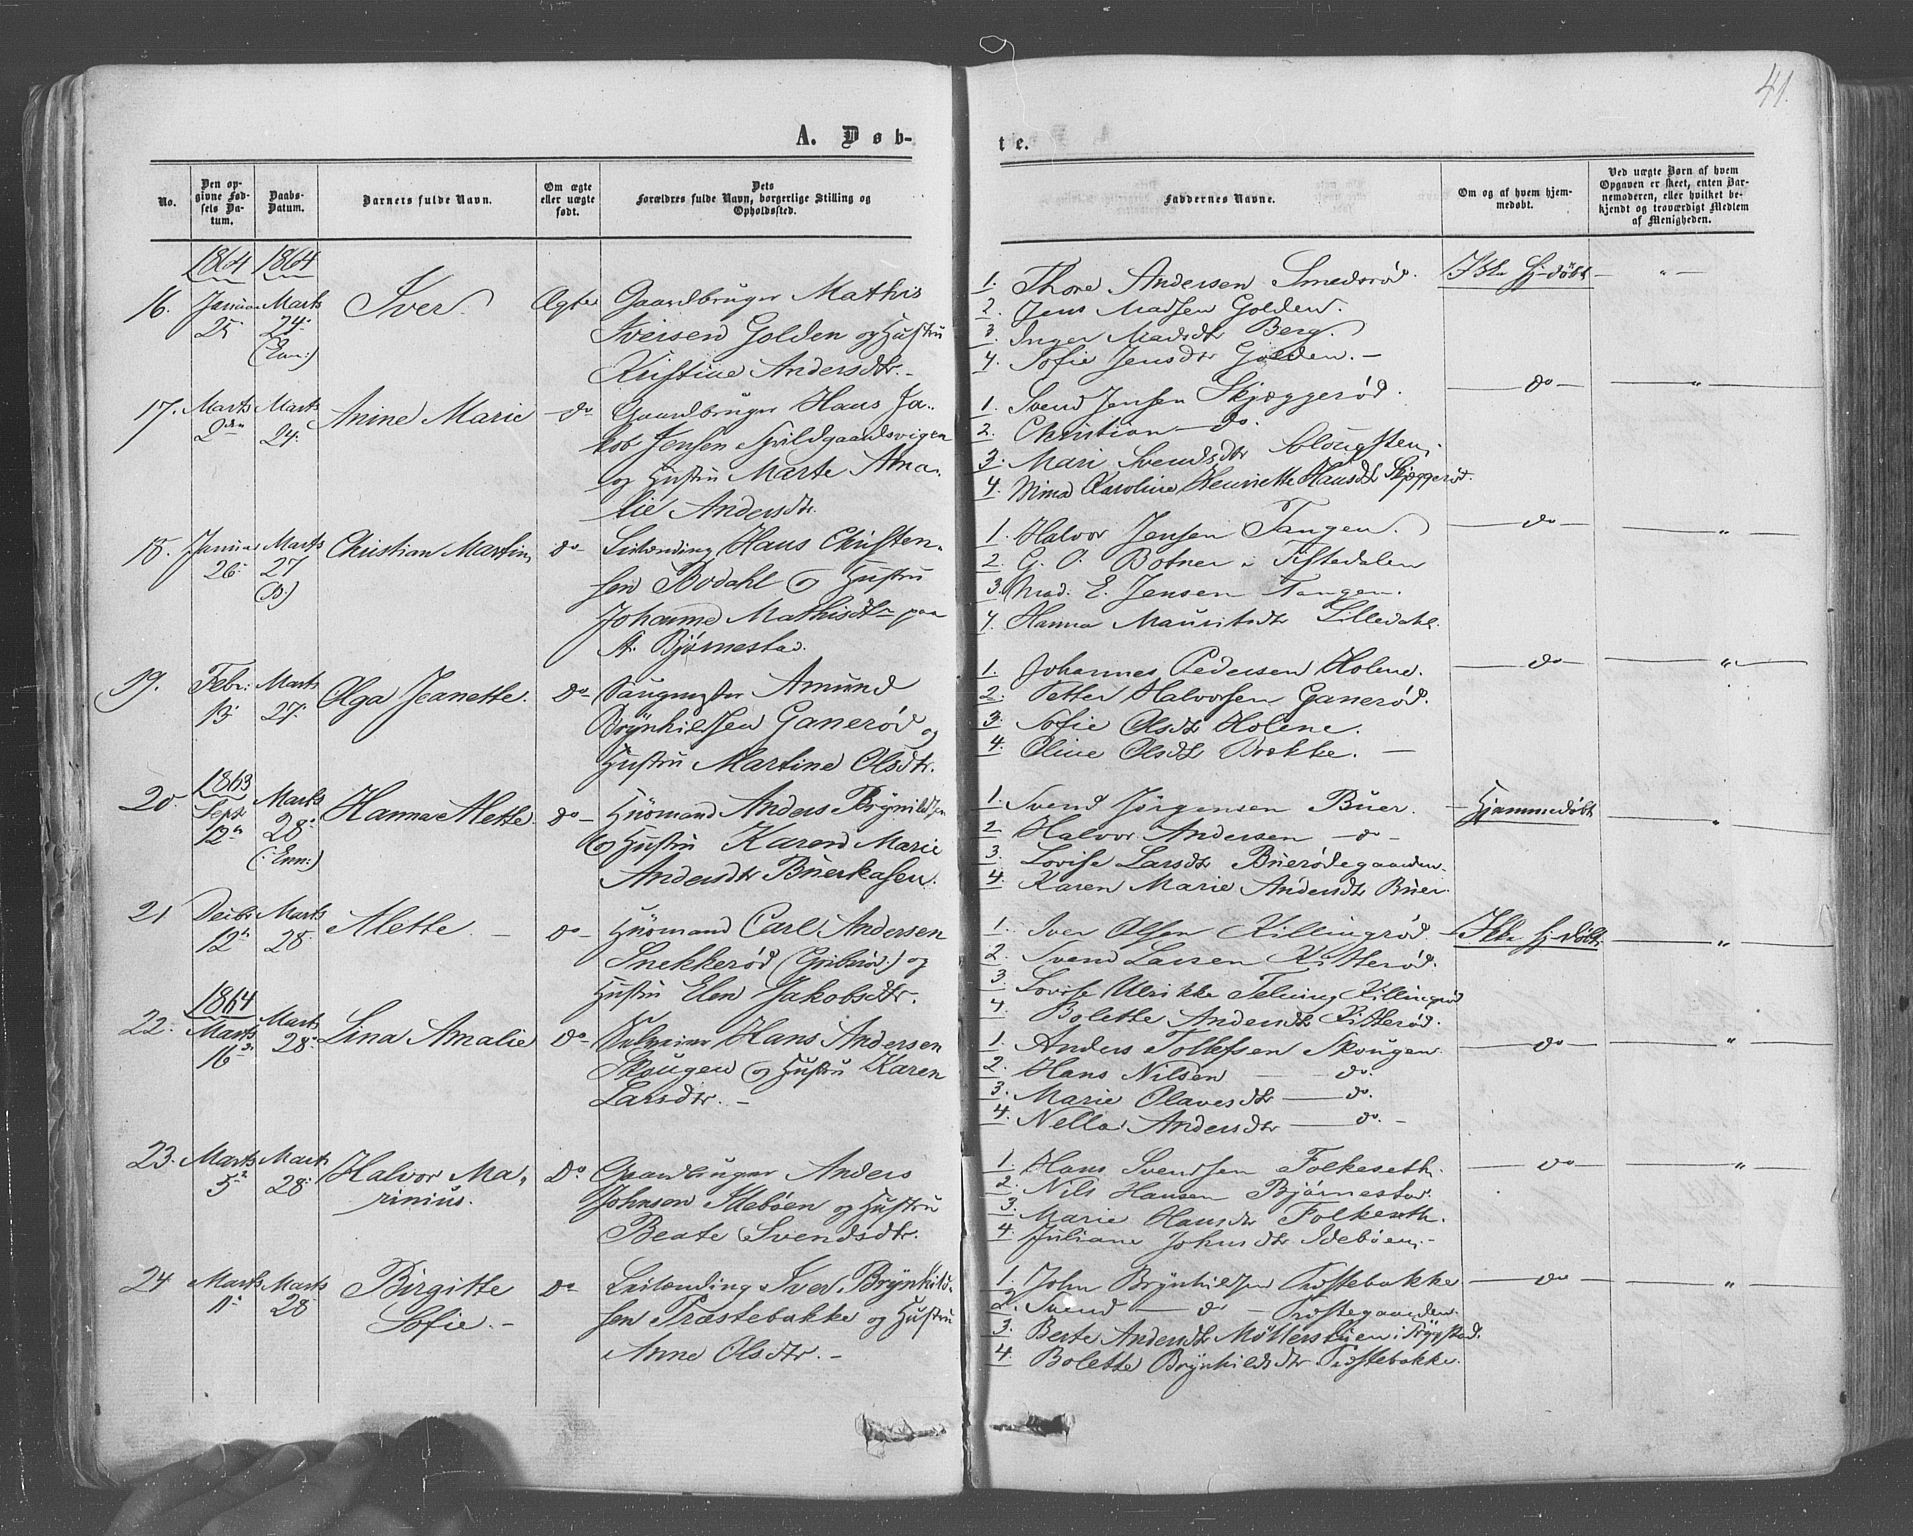 41.
A. Døb-
te.
No.
Den op-
givne Fød-
sels Da-
tum.
Daabs-
Datum.
Barnets fulde Navn.
Om ægte
eller uægte
født.
Dets
Forældres fulde Navn, borgerlige Stilling og
Opholdssted.
Faddernes Navne.
Om og af hvem hjem-
medøbt.
Ved uægte Børn af hvem
Opgaven er skeet, enten Bar-
nemoderen, eller hvilket be-
kjendt og troværdigt Medlem
af Menigheden.
1864 1864
16. Januar 25 Marts 24 (Enn:) Iver Ægte
Gaardbruger Mathis
Iversen Golden og Hustru
Kristine Andersdtr. -
1. Thore Andersen Smedsrød.
2. Jens Madsen Golden.
3. Inger Madsdtr Berg.
4. Sofie Jensdtr Golden. -
Ikke Hj-døbt - " -
17. Marts 2den Marts 24. Anine Marie - do
Gaardbruger Hans Ja-
kob Jensen
og Hustru Marte Ama-
lie Andersdtr.
1. Svend Jensen Skjæggerød.
2. Christian - do.
3. Mari Svendsdtr
4. Nina Karoline Henriette Hansdtr Skjæggerød.
- do - "
18. Januar 26. Marts 27 Christian Martin, do-
Leilænding Hans Christen-
sen Bodahl og Hustru
Johanne Mathisdtr paa
Bjørnestad.
1. Halvor Jensen Tangen.
2. G. O. Botner i Tistedalen
3. Mad. E. Jensen Tangen.
4. Hanna Mauritsdtr Lilledahl.
- do - " -
19. Febr: 13 Marts 27. Olga Jeanette. do-
Saugmester Amund
Brynhilssen Ganerød og
Hustru Martine Olsdtr.
1. Johannes Pedersen Holene.
2. Petter Halvorsen Ganerød.
3. Sofie Olsdtr Holene.
4. Oline Olsdtr Brække. -
- do - " -
20. 1863 Sept 12te Marts 28 (: Enn:) Hanna Alette. do-
Husmand Anders Brynildsen
og Hustru Karen Marie
Andersdtr Buerkasen.
1. Svend Jørgensen Buer.
2. Halvor Andersen - do -
3. Lovise Larsdtr Buerødegaarden.
4. Karen Marie Andersdtr Buer.
- Hjemmedøbt "
21 Decbr 12te Marts 28. Alette. - do-
Husmand Carl Andersen
Snekkerød og
Hustru Elen Jakobsdtr.
1. Iver Olsen Killingrød.
2. Svend Larsen Kitterød.
3. Lovise Ulrikke Killingrød
4. Bolette Andersdtr Kitterød.
- Ikke Hj-døbt "
1864
22. Marts 16de Marts 28. Lina Amalie do-
Selveier Hans Andersen
Skougen og Hustru Karen
Larsdtr. -
1. Anders Tollefsen Skougen.
2. Hans Nilsen - do.
3. Marie Olavesdtr - do.
4. Nella Andersdtr - do. -
- do - "
23. Marts 5te Marts 28. Halvor Ma-
rinius. do
Gaardbruger Anders
Johnsen Idebøen og Hustru
Beate Svendsdtr.
1. Hans Svendsen Folkeseth.
2. Nils Hansen Bjørnestad.
3. Marie Hansdtr Folkeseth.
4. Juliane Johnsdtr Idebøen. -
- do - "
24 Marts 1ste Marts 28. Birgitte
Sofie. - do-
Leilænding Iver Brynhild-
sen Træstebakke og Hustru
Anne Olsdtr. -
1. John Brynhildsen Træstebakke
2. Svend - do - Træstegaarden.
3. Berte Andersdtr Møllerstuen i Trygstad.
4. Bolette Brynhildsdtr Træstebakke.
- do - "